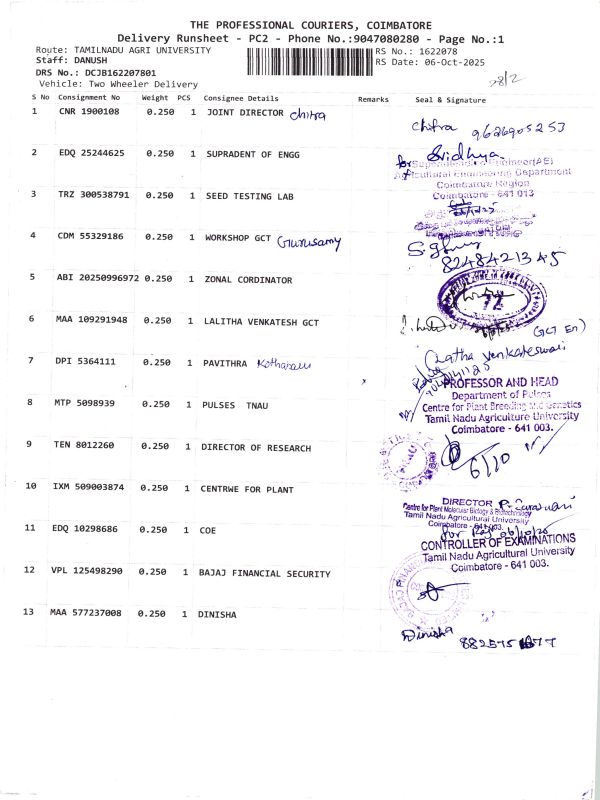 THE PROFESSIONAL COURIERS, COIMBATORE
Delivery Runsheet - PC2 - Phone No.:9047080280 - Page No.:1
Route: TAMILNADU AGRI UNIVERSITY
RS No.: 1622078
Staff: DANUSH
RS Date: 06-Oct-2025
DRS No.: DCJB162207801
Vehicle: Two Wheeler Delivery
28/2
S No Consignment No Weight PCS Consignee Details Remarks Seal & Signature
1 CNR 1900108 0.250 1 JOINT DIRECTOR chitra
chitra 9626905253
2 EDQ 25244625 0.250 1 SUPRADENT OF ENGG
Sridhya
for Superintending Engineer(AE)
Agricultural Engineering Department
Coimbatore Region
Coimbatore - 641 013
3 TRZ 300538791 0.250 1 SEED TESTING LAB
4 CDM 55329186 0.250 1 WORKSHOP GCT Gurusamy
8248421345
5 ABI 20250996972 0.250 1 ZONAL CORDINATOR
72
6 MAA 109291948 0.250 1 LALITHA VENKATESH GCT
(GCT En)
Latha Venkateswari
7 DPI 5364111 0.250 1 PAVITHRA
PROFESSOR AND HEAD
Department of Pulses
8 MTP 5098939 0.250 1 PULSES TNAU
Centre for Plant Breeding and Genetics
Tamil Nadu Agriculture University
Coimbatore - 641 003.
9 TEN 8012260 0.250 1 DIRECTOR OF RESEARCH
6/10
10 IXM 509003874 0.250 1 CENTRWE FOR PLANT
DIRECTOR P. Saraswari
Centre for Plant Molecular Biology & Biotechnology
Tamil Nadu Agricultural University
Coimbatore - 641 003.
11 EDQ 10298686 0.250 1 COE
06/10/25
CONTROLLER OF EXAMINATIONS
Tamil Nadu Agricultural University
Coimbatore - 641 003.
12 VPL 125498290 0.250 1 BAJAJ FINANCIAL SECURITY
13 MAA 577237008 0.250 1 DINISHA
Dinisha